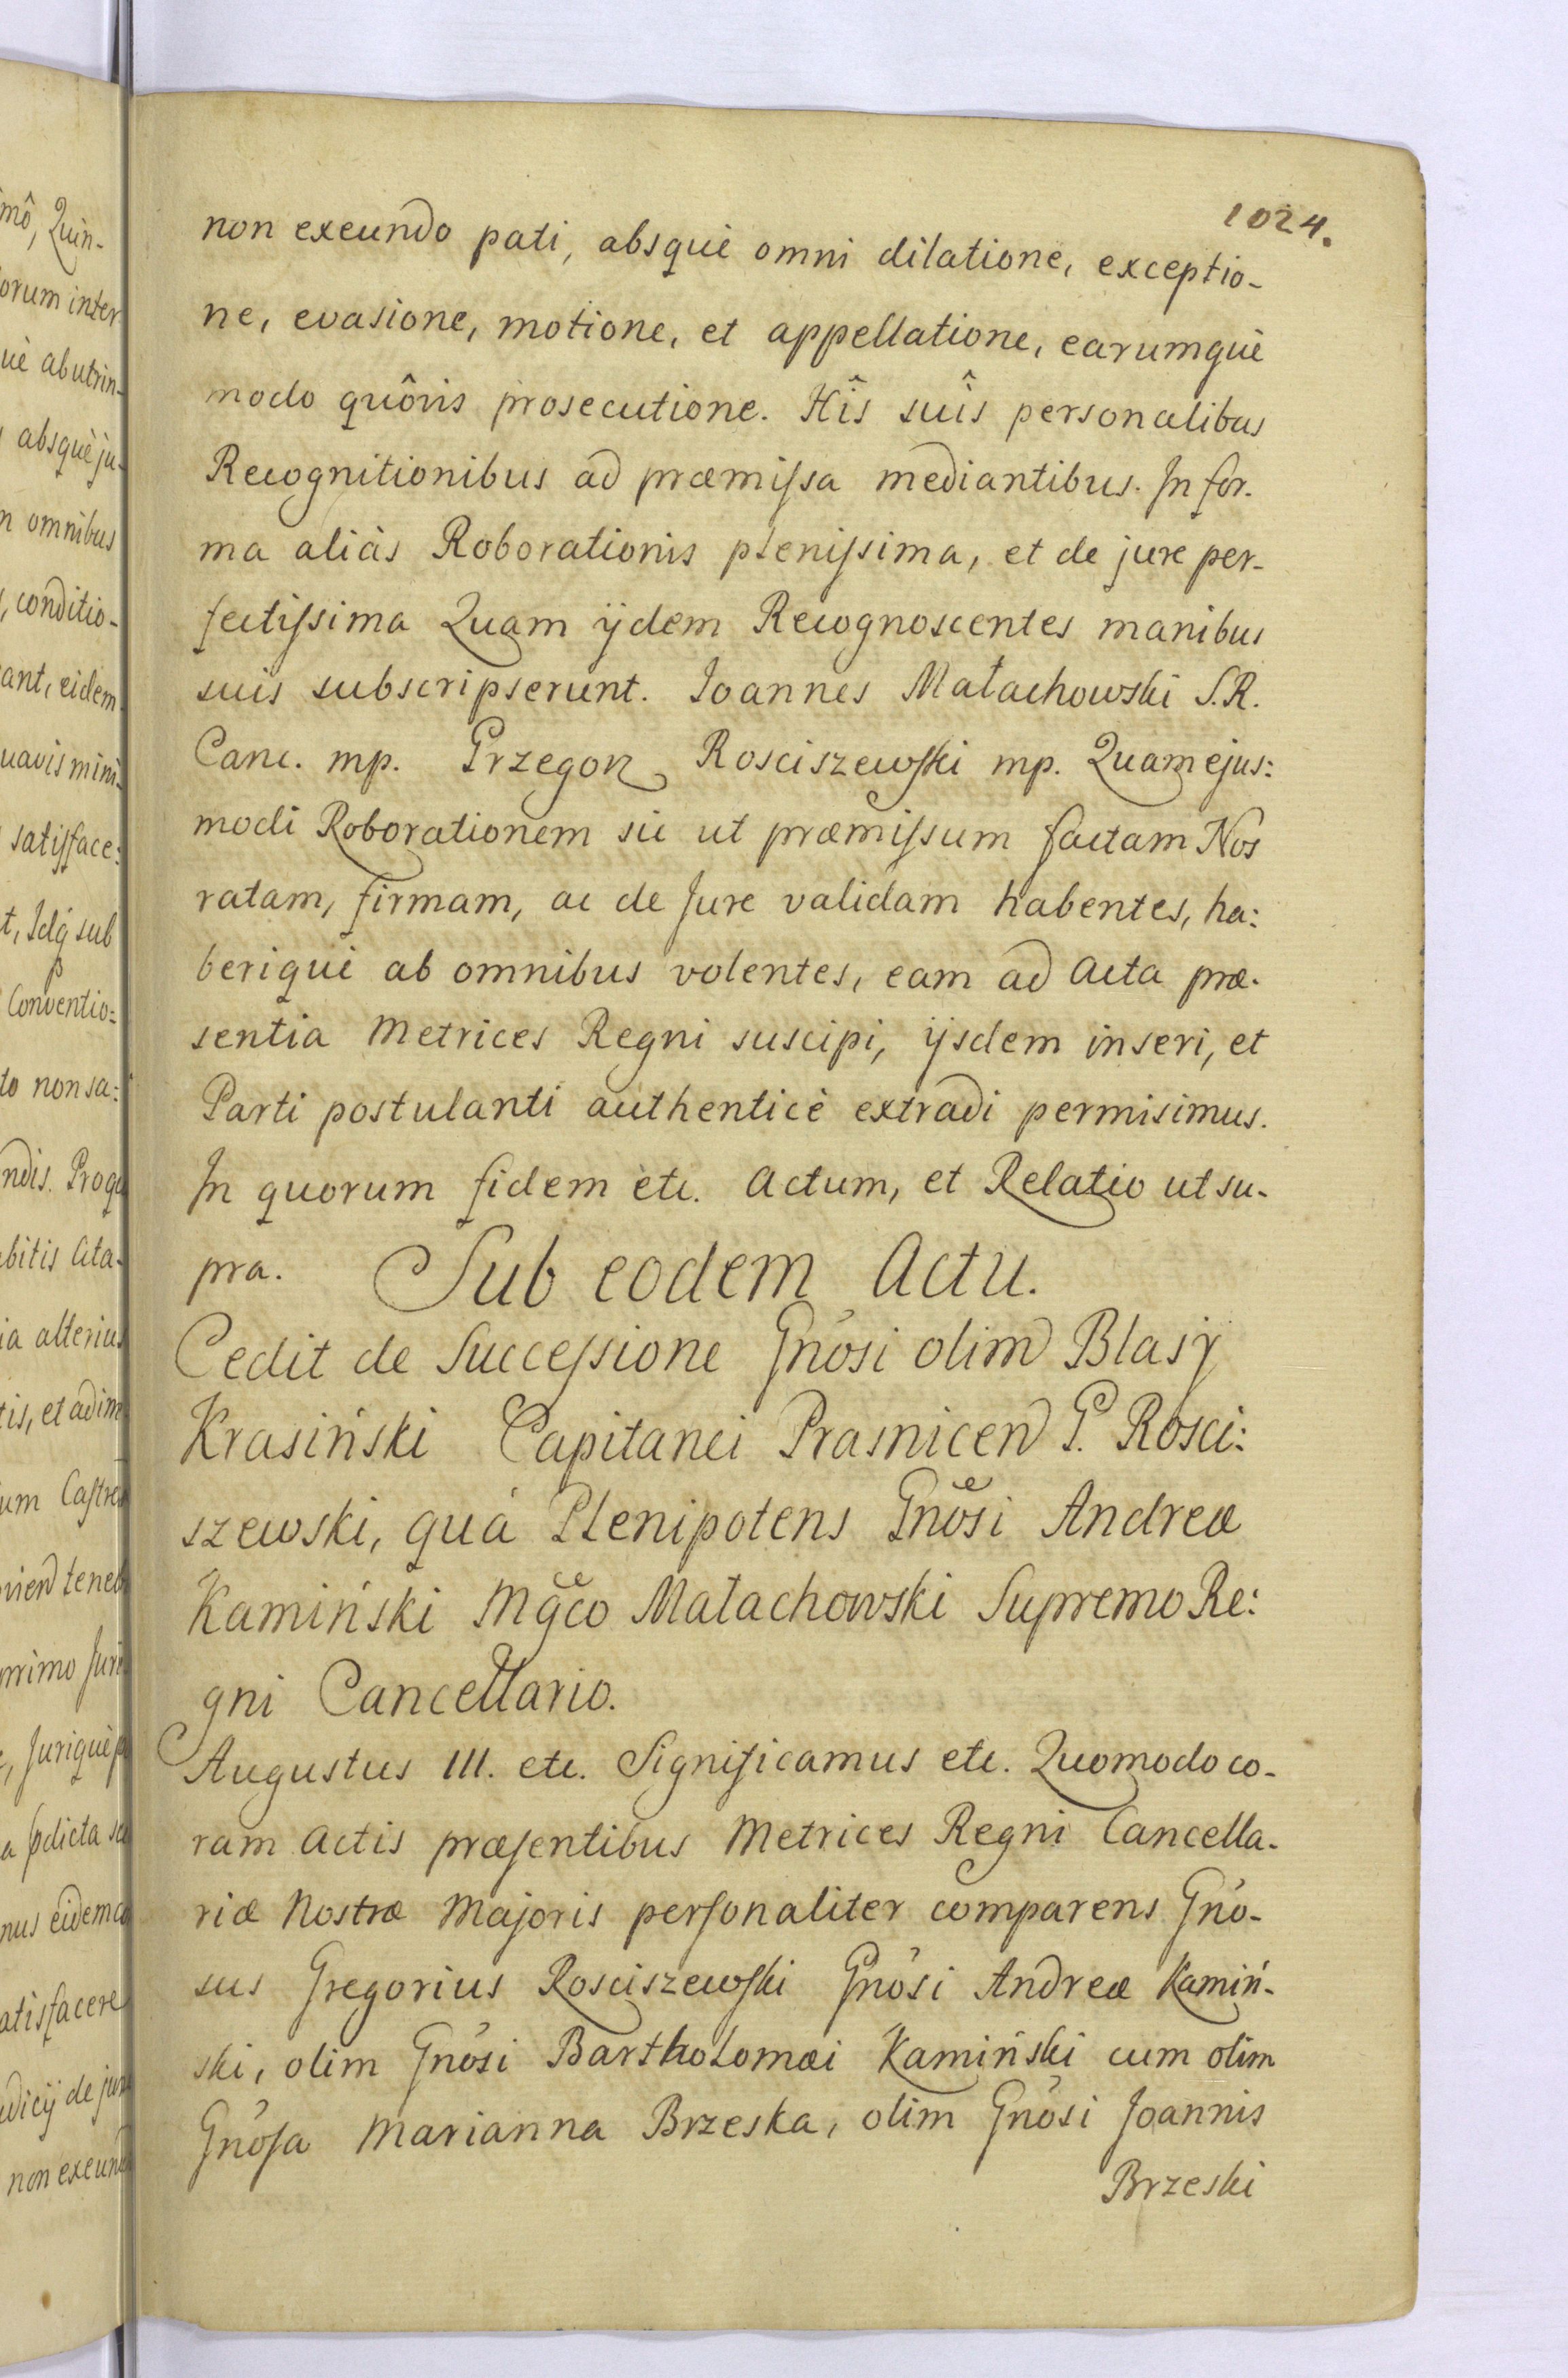 1024.
non exeundo pati, absquè omni dilatione, exceptio-
ne, evasione, motione, et appellatione, earumquè
modo quôvis prosecutione. Hîs suîs personalibus
Recognitionibus ad præmiſsa mediantibus. In for-
ma aliàs Roborationis pleniſsima, et de jure per-
fectiſsima Quam ijdem Recognoscentes manibus
suis subscripserunt. Ioannes Małachowski S.R.
Canc. mp. Grzegorz Rosciszewſki mp. Quam ejus:
modi Roborationem sic ut præmiſsum factam Nos
ratam, firmam, ac de Jure validam habentes, ha:
beriquè ab omnibus volentes, eam ad Acta præ-
sentia Metrices Regni suscipi, ijsdem inseri, et
Parti postulanti authenticè extradi permisimus.
In quorum fidem etc. Actum, et Relatio ut su-
pra. Sub eodem Actu.
Cedit de Succeſsione Gnôsi olim Blasij
Krasiński Capitanei Prasnicen G. Rosci:
szewski, quà Plenipotens Gnôsi Andreæ
Kamiński Mgco Małachowski Supremo Re:
gni Cancellario.
Augustus III. etc. Significamus etc. Quomodo co-
ram Actis præſentibus Metrices Regni Cancella-
riæ Nostræ Majoris perſonaliter comparens Gnô-
sus Gregorius Rosciszewſki Gnôsi Andreæ Kamiń-
ski, olim Gnôsi Bartholomæi Kamiński cum olim
Gnôſa Marianna Brzeska, olim Gnôsi Joannis
Brzeski